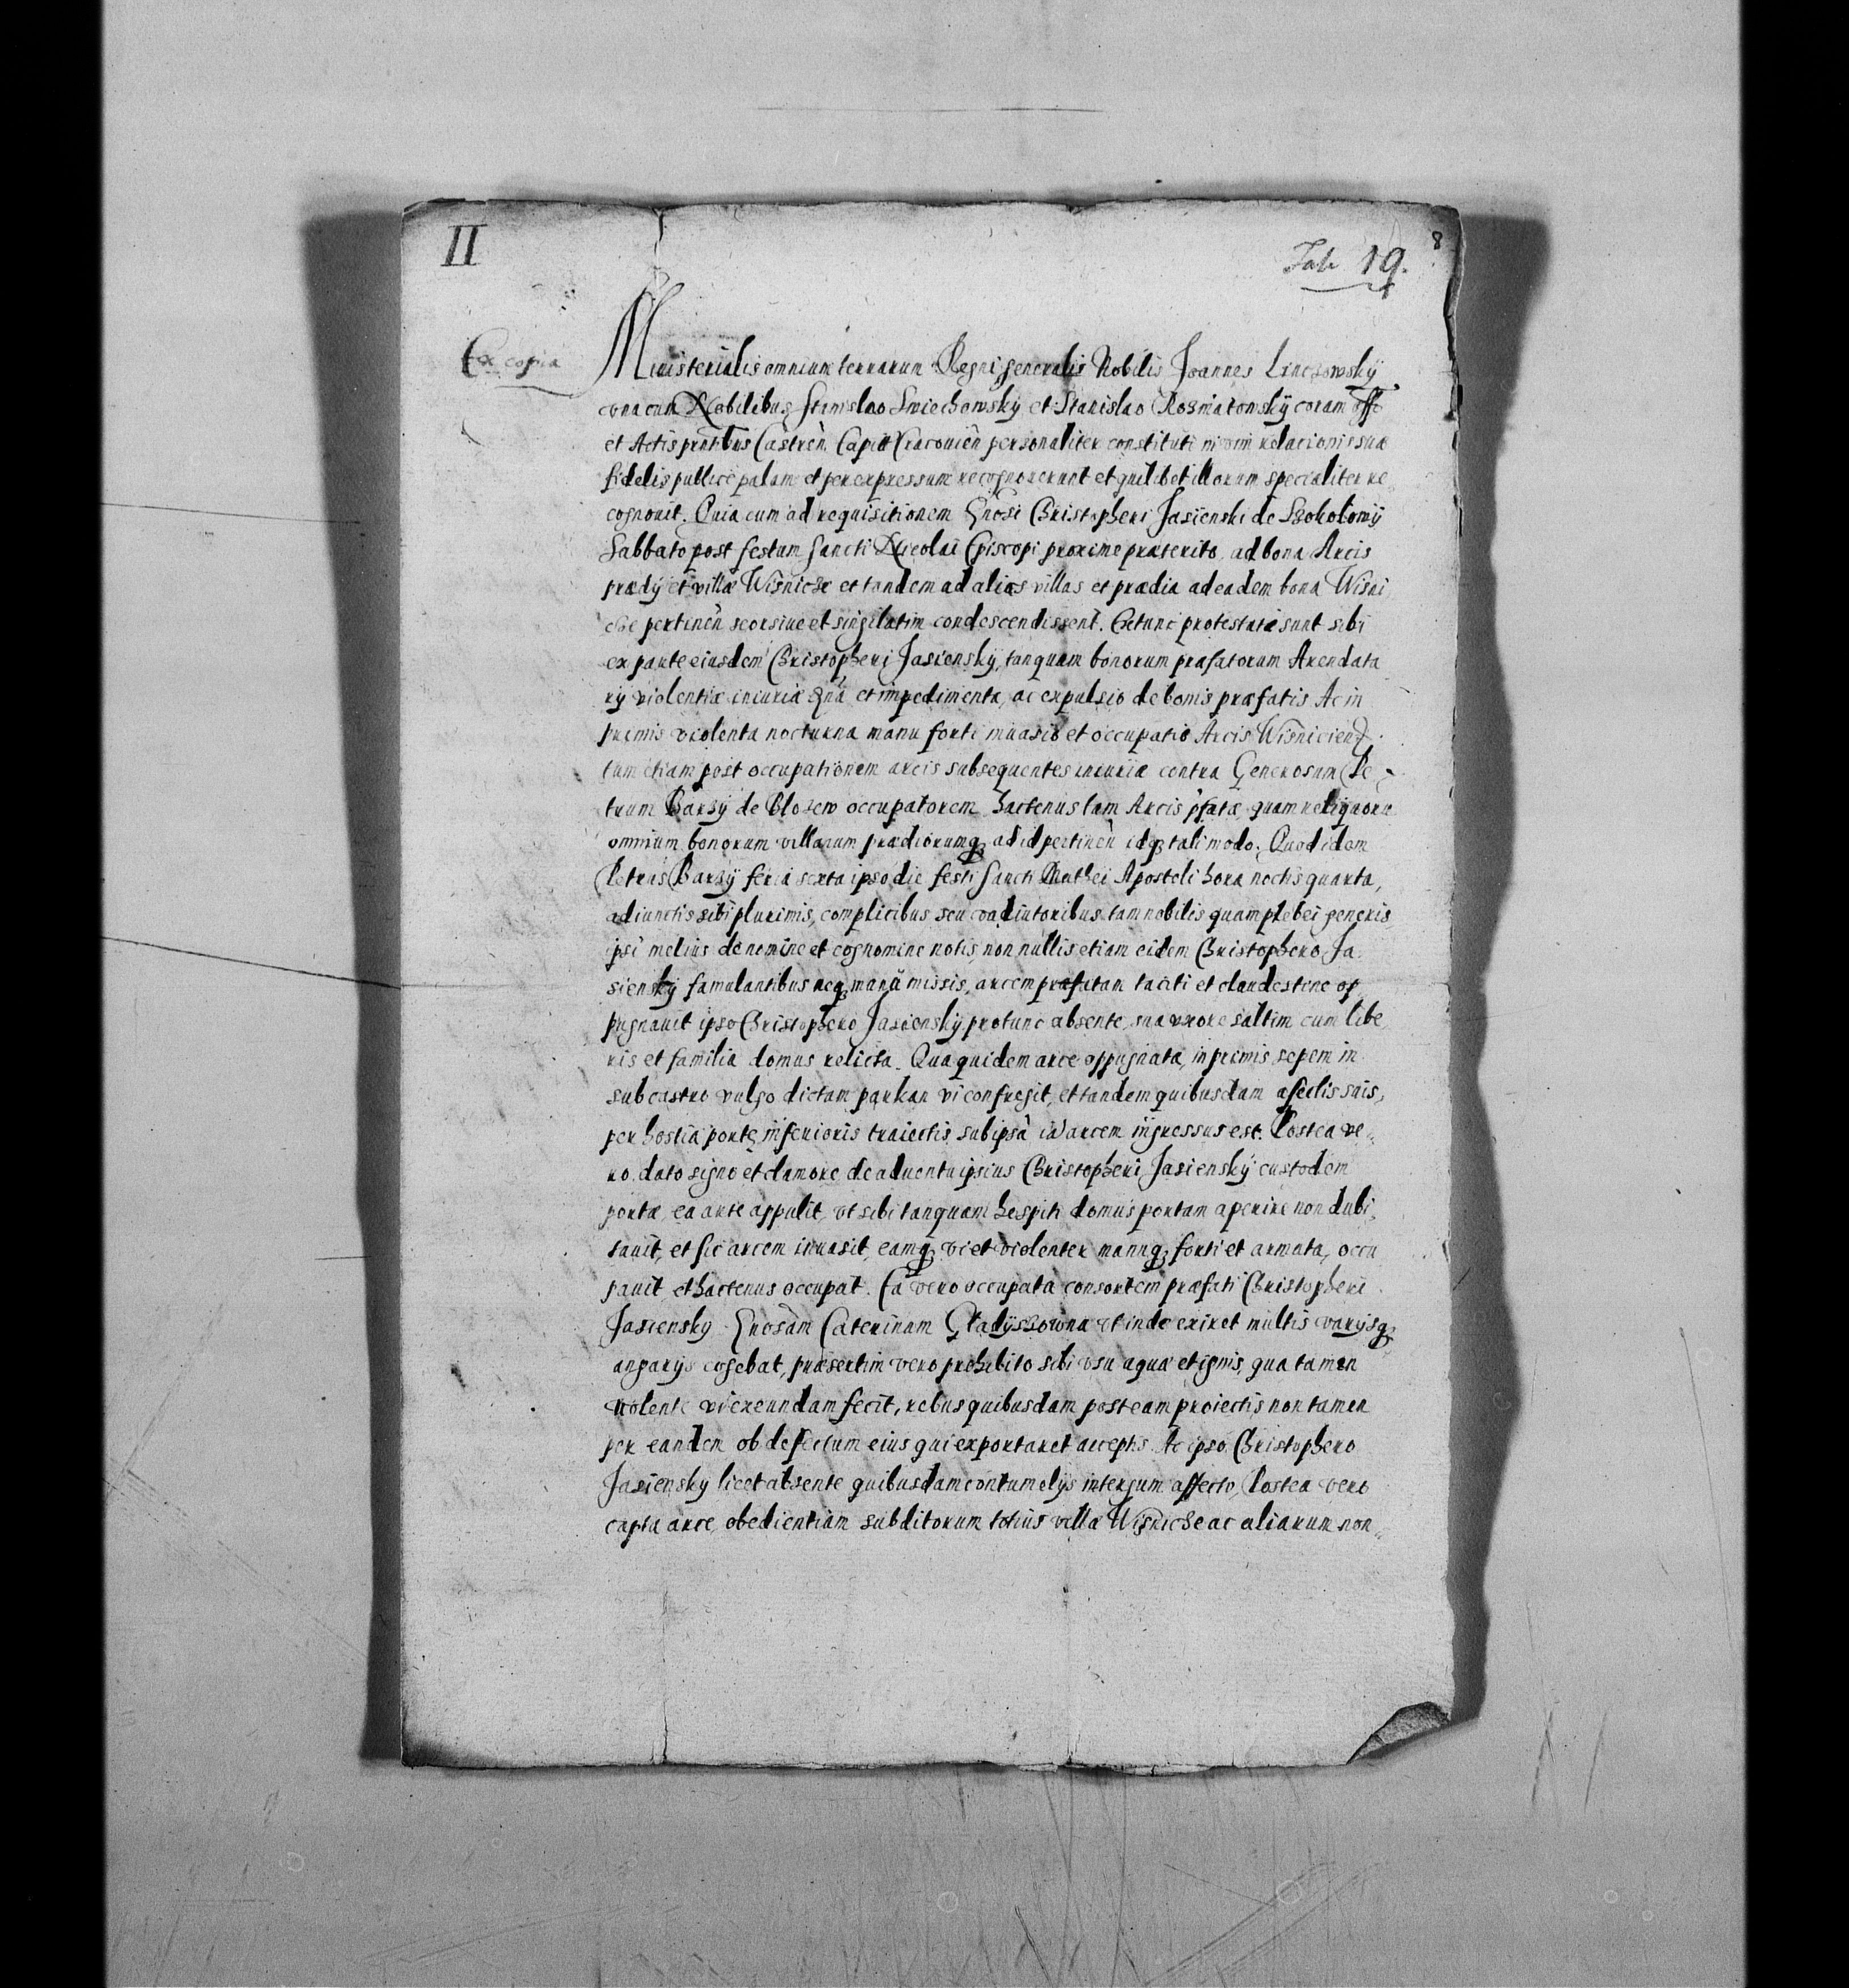 II
8
19.
Ex copia
Ministerialis omnium terrarum Regni generalis Nobilis Joannes
una cum Nobilibus Stanislao Swiechowsky et Stanislao Rosmatowsky coram offo
et Actis pntibus Castren. Capit Cracouien personaliter constituti relacionis suæ
fidelis pullice palam et per expressum recognoverunt et quilibet illorum specialiter re
cognouit. Quia cum ad requisitionem Gnosi Christopheri Jasienski de
Sabbato post festum Sancti Nicolai Episcopi proxime præterito, ad bona Arcis
prædy et villæ Wisnicze et tandem ad alias villas et prædia ad eadem bona Wisni
cze pertinen seorsiue et singilatim condescendissent. Extunc protestatæ sunt sibi
ex parte eiusdem Christopheri Jasiensky, tanquam bonorum præfatorum Arendata
ry violentiæ iniuriæ et impedimenta, ac expulsio de bonis præfatis Ac in
primis violenta nocturna manu forti inuasio et occupatio Arcis Wisnicien
tum etiam post occupationem arcis subsequentes iniuriæ contra Generosum Pe
trum Barzy de Blozew occupatorem hactenus tam Arcis pfatæ quam reliquorum
omnium bonorum villarum prædiorumq ad id pertinen idq tali modo. Quod idem
Petrus Barzy feria sexta ipso die festi Sancti Mathei Apostoli hora noctis quarta,
adiunctis sibi plurimis, complicibus seu coadiutoribus tam nobilis quam plebei generis
ipsi melius de nomine et cognomine notis, non nullis etiam eidem Christophero Ja
siensky famulantibus neq manu missis, arcem præfatam taciti et clandestine op
pugnauit ipso Christophero Jasiensky protunc absente, sua uxore saltim cum libe
ris et familia domus relicta. Qua quidem arce oppugnata, inprimis sepem in
subcastro vulgo dictam parkan vi confregit, et tandem quibusdam asseclis suis,
per hostia portę inferioris traiectis, sub ipsa arcem ingressus est. Postea ve
ro dato signo et clamore de aduentu ipsius Christopheri Jasiensky custodem
portæ, ea arte appulit, vt sibi tanquam hospiti domus portam aperire non dubi
tauit, et sic arcem inuasit, eamq vi et violenter manuq forti et armata, occu
pauit et hactenus occupat. Ea vero occupata consortem præfati Christopheri
Jasiensky Gnosam Caterinam Gładyszowna vt inde exiret multis varysq
angarys cogebat, præsertim vero prohibito sibi vsu aquæ et ignis, qua tamen
nolente vi exeundam fecit, rebus quibusdam post eam proiectis non tamen
per eandem ob defectum eius qui exportaret acceptis. Ac ipso Christophero
Jasiensky licet absente quibusdam contumelys intergum affecto, Postea vero
capta arce, obedientiam subditorum totius villæ Wisnicze ac aliarum non